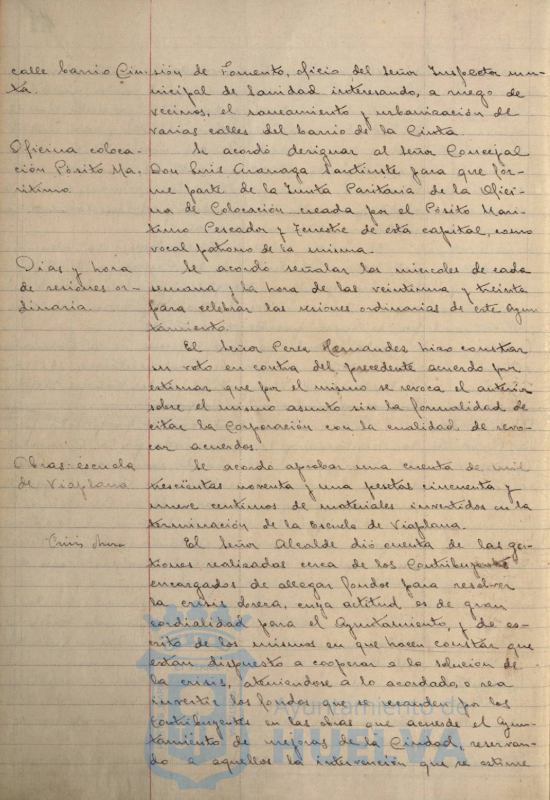 calle barrio Cin- sión de Fomento, oficio del Señor Inspector mu-
ta. nicipal de Sanidad interesando, a ruego de
vecinos, el saneamiento y urbanización de
varias calles del barrio de la Cinta.
Oficina coloca- Se acordó designar al Señor Concejal
ción Pósito Ma- Don Luis para que for-
rítimo. me parte de la Junta Paritaria de la Ofici-
na de Colocación creada por el Pósito Marí-
timo Pescador y Terrestre de esta capital, como
vocal patrono de la misma.
Días y hora Se acordó señalar los miercoles de cada
de sesiones or- semana y la hora de las veintiuna y treinta
dinaria. para celebrar las sesiones ordinarias de este Ayun-
tamiento.
El Señor Perez Hernandez hizo constar
su voto en contra del precedente acuerdo por
estimar que por el mismo se revoca el anterior
sobre el mismo asunto sin la formalidad de
citar la Corporación con la cualidad de revo-
car acuerdos.
Obras escuela Se acordó aprobar una cuenta de mil
de Viaplana trescientas noventa y una pesetas cincuenta y
nueve centimos de materiales invertidos en la
terminación de la Escuela de Viaplana.
Crisis obrera El Señor Alcalde dió cuenta de las ges-
tiones realizadas cerca de los Contribuyentes
encargados de allegar fondos para resolver
la crisis obrera, cuya actitud es de gran
cordialidad para el Ayuntamiento, y de es-
crito de los mismos en que hacen constar que
estan dispuesto a cooperar a la solucion de
la crisis, ateniendose a lo acordado, o sea
invertir los fondos que se recauden por los
Contribuyentes en las obras que acuerde el Ayun-
tamiento de mejoras de la Ciudad, reservan-
do a aquellos la intervención que se estime
Ayuntamiento de
HUELVA